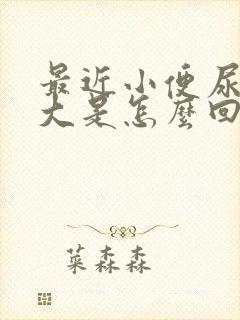 最近小便尿
大是怎麼回
菜森森